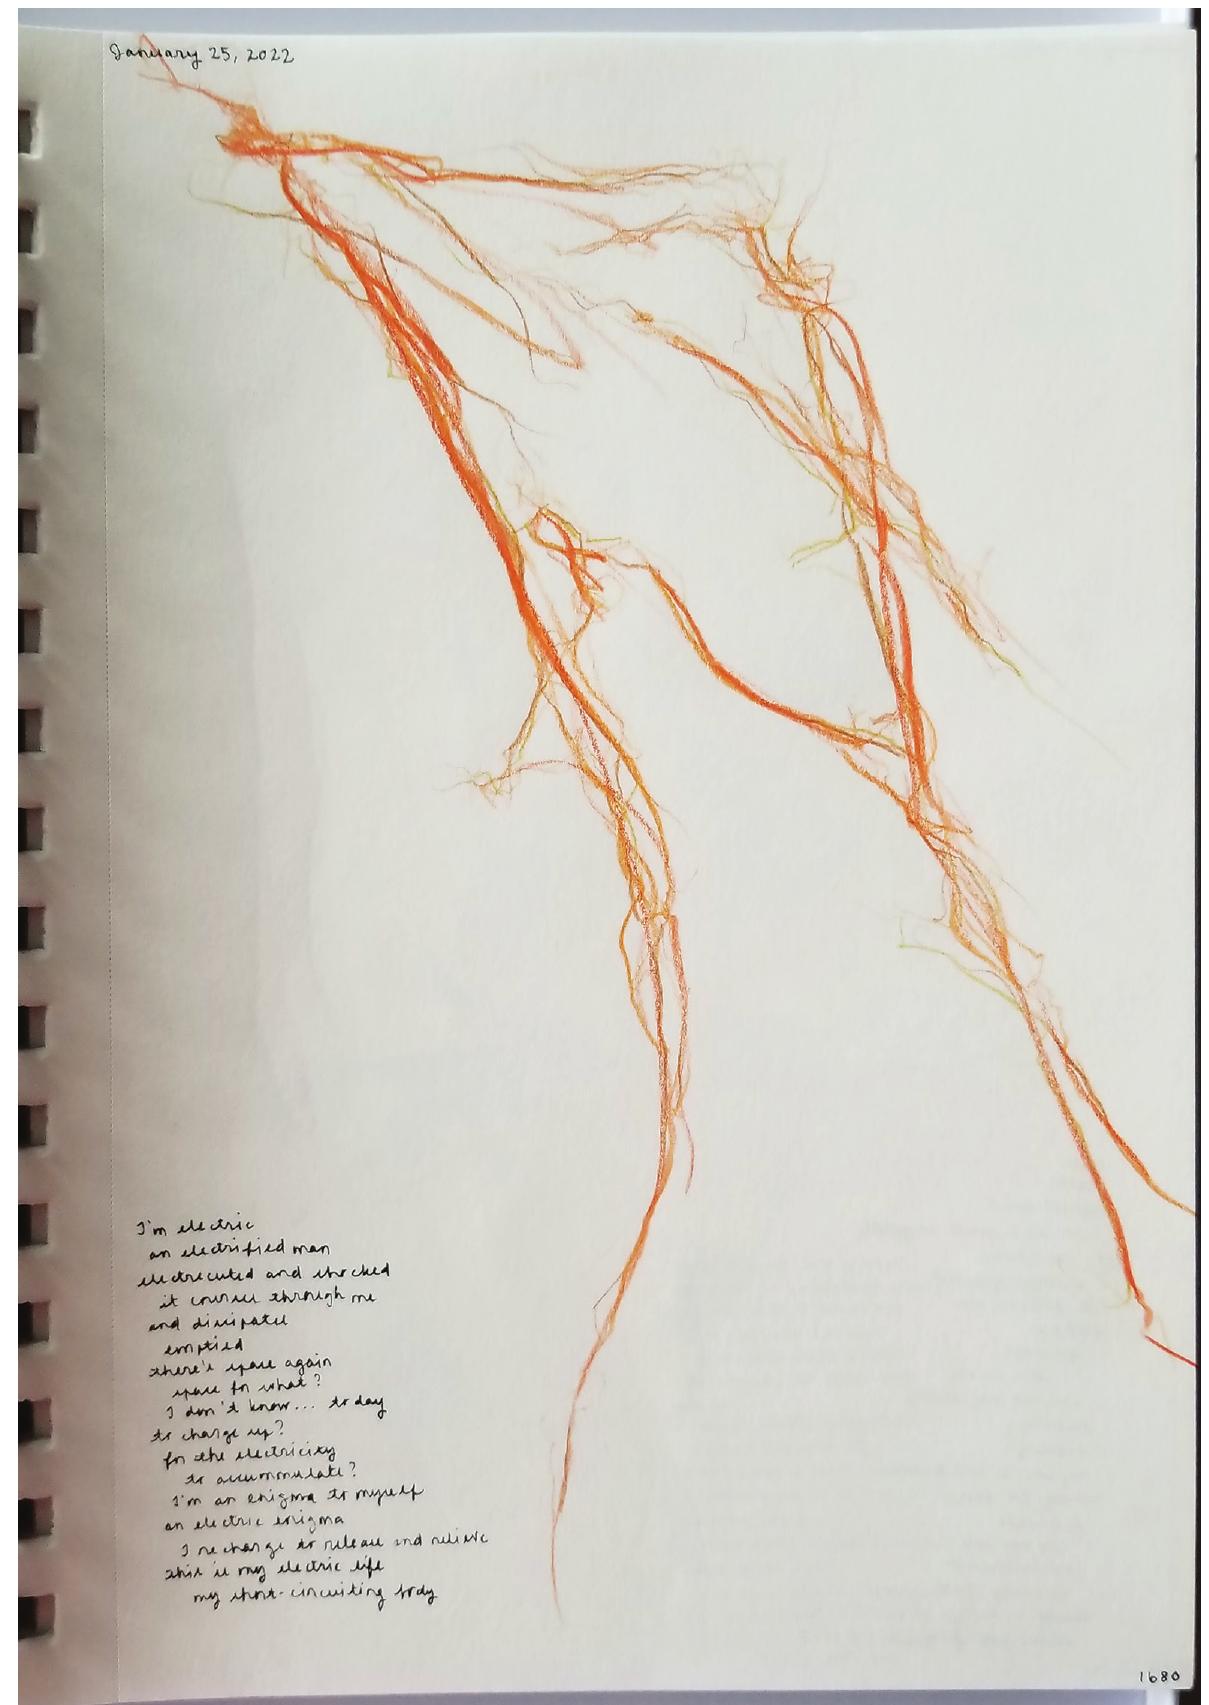 January 25, 2022
I'm electric
an electrified man
electrocuted and shocked
it courses through me
and dissipates
emptied
there's space again
space for what?
I don't know... today
to charge up?
for the electricity
to accummulate?
I'm an enigma to myself
an electric enigma
I recharge to release and relieve
this is my electric life
my short-circuiting body
1680